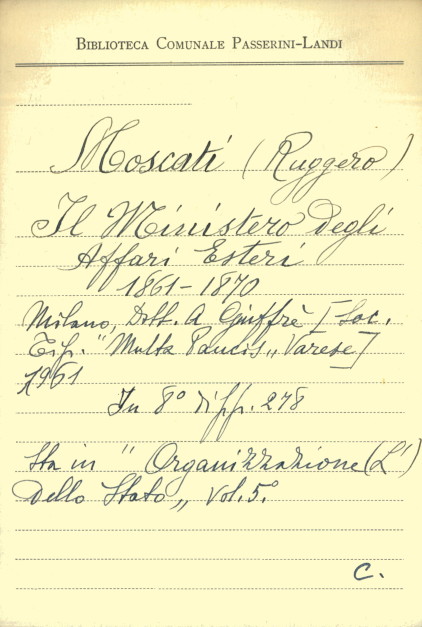 BIBLIOTECA COMUNALE PASSERINI-LANDI
Moscati (Ruggero)
Il Ministero degli
Affari Esteri
1861-1870
Milano, Dott. A Giuffrè [Soc.
Tip. "Multa Paucis„ Varese]
1961
In 8° pp. 278
Sta in " Organizzazione (L')
Dello Stato „ Vol. 5°
C.